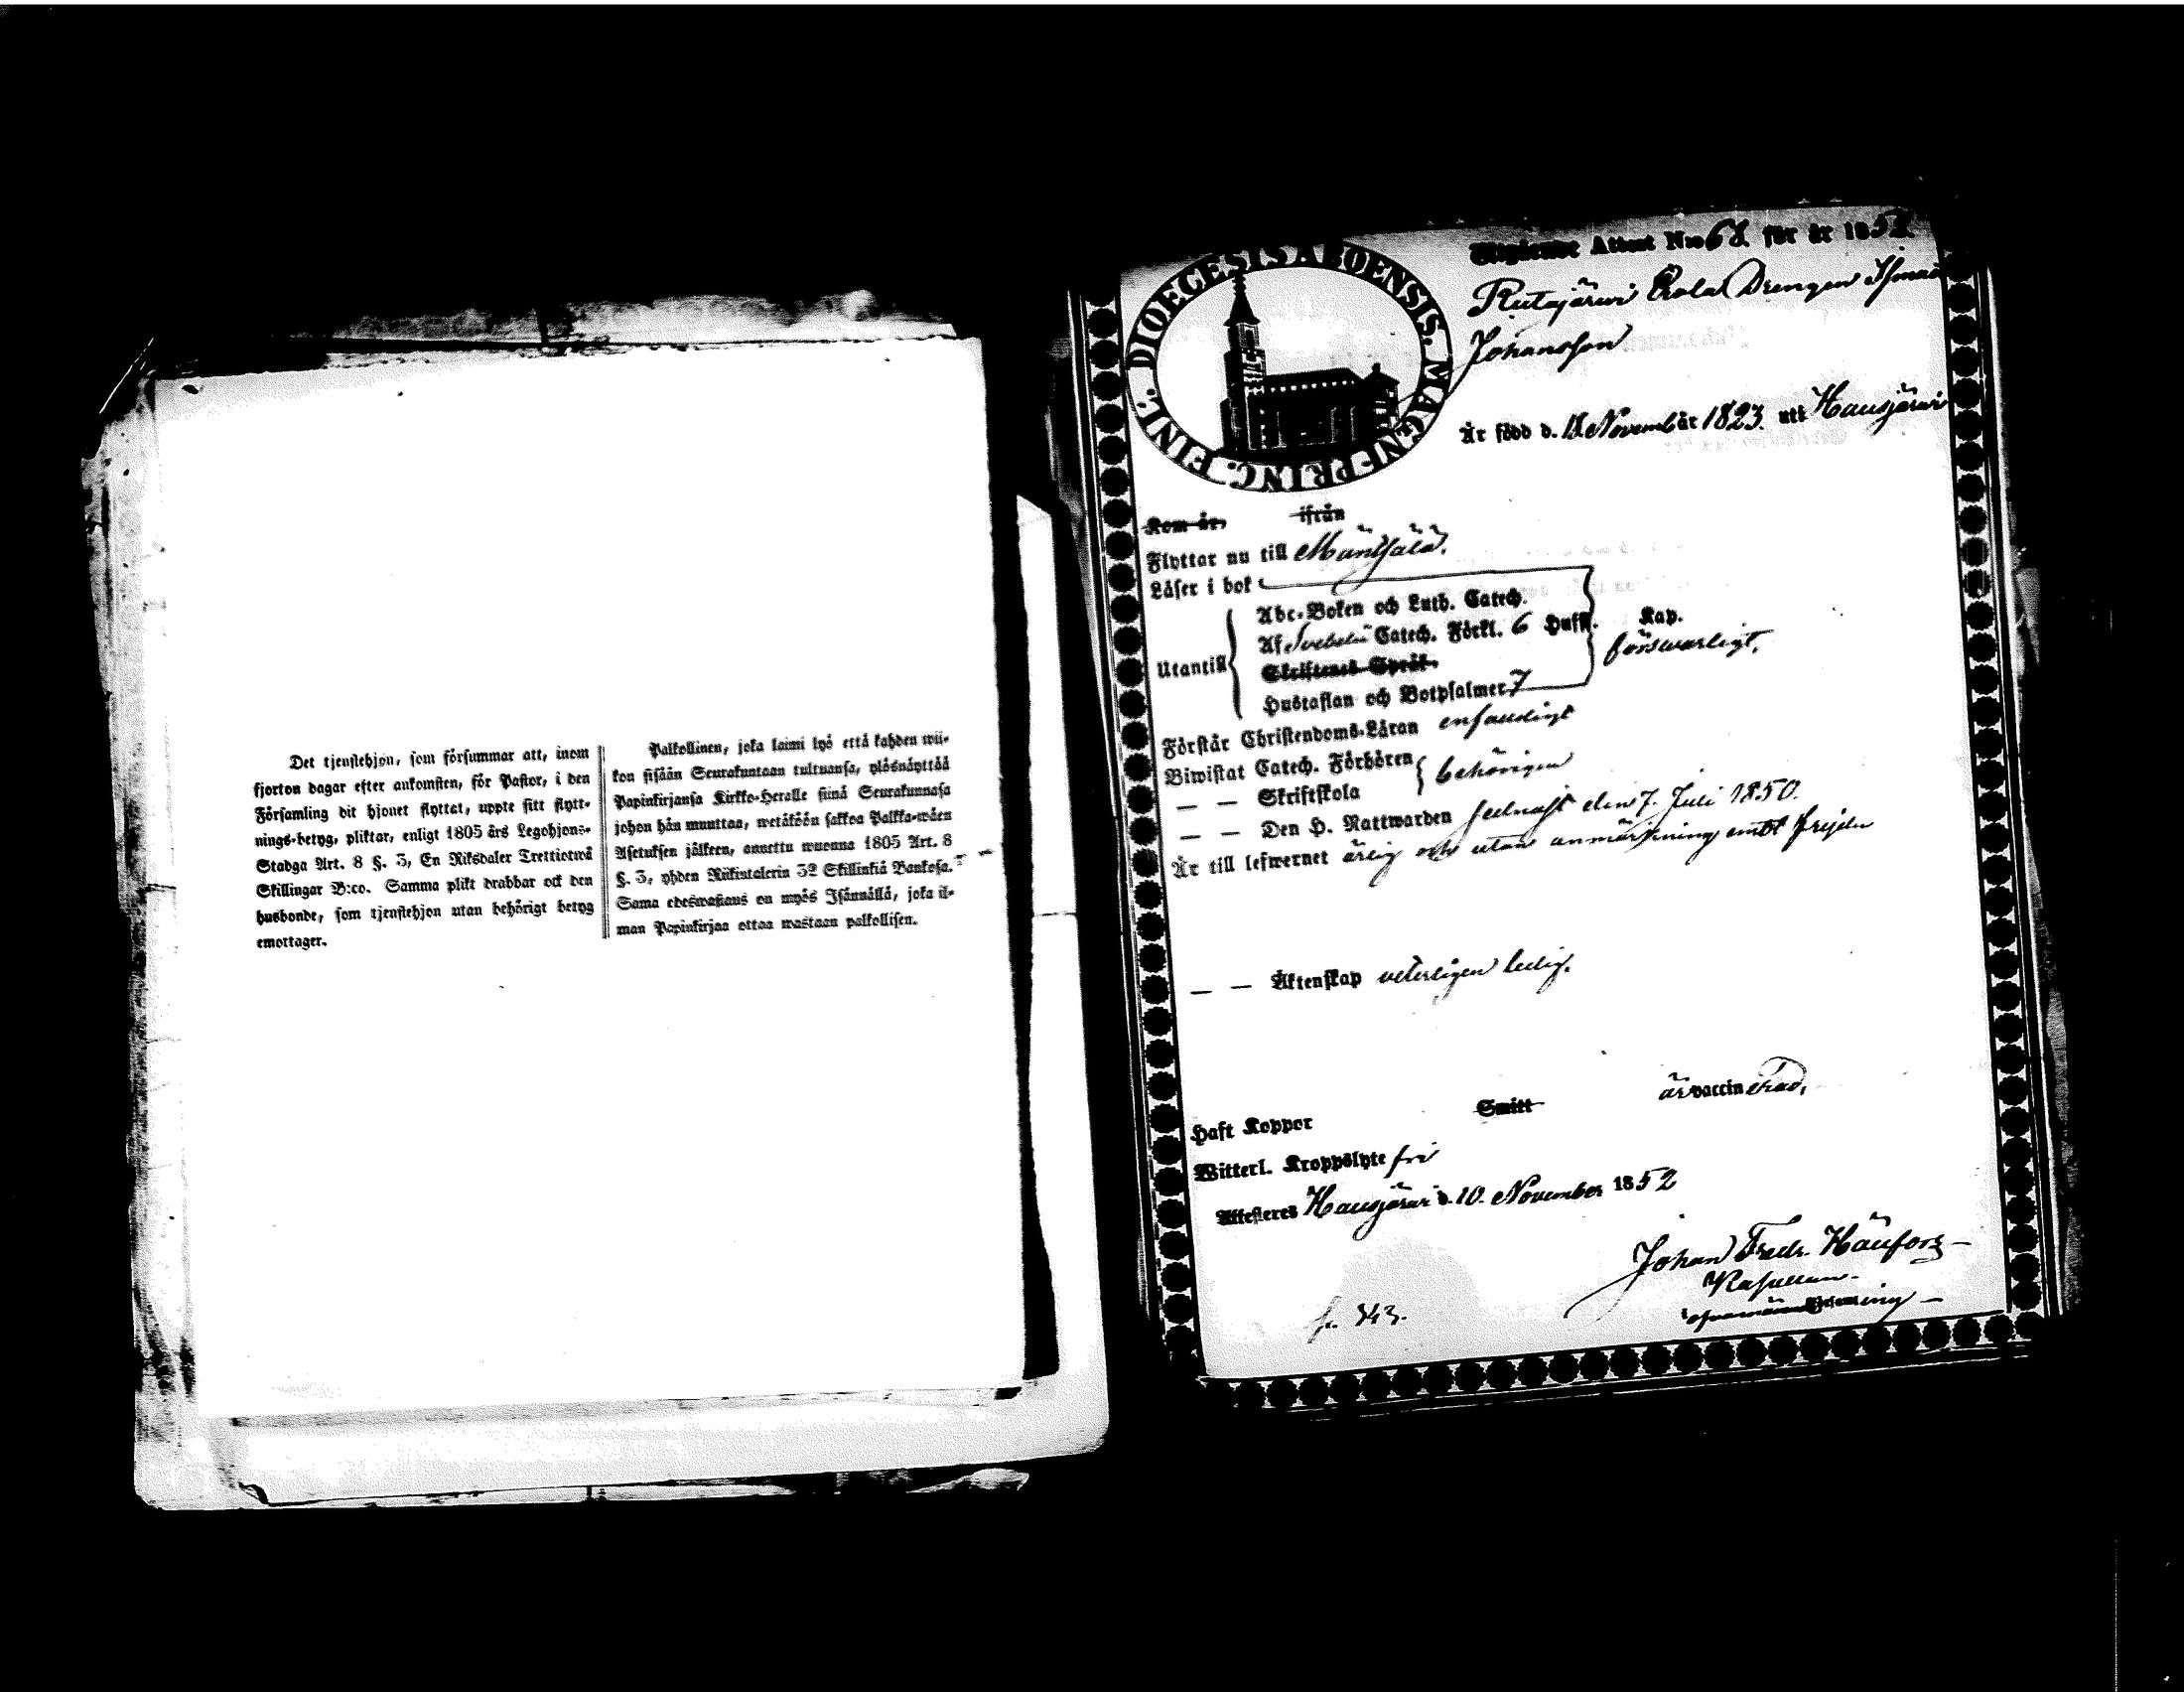 Det tjenstehjon, som försummar att, inom
fjorton dagar efter ankomsten, för Pastor, i den
Församling dit hjonet flyttat, uppte sitt flytt-
nings-betyg, pliktar, enligt 1805 års Legohjons-
Stadga Art. 8 §. 3, En Riksdaler Trettiotwå
Skillingar B:co. Samma plikt drabbar ock den
husbonde, som tjenstehjon utan behörigt betyg
emottager.
Palkollinen, joka laimi lyö että kahden wii-
kon sisään Seurakuntaan tultuansa, ylösnäyttää
Papinkirjansa Kirkko-Heralle siinä Seurakunnasa
johon hän muuttaa, wetäköön sakkoa Palkka-wäen
Asetuksen jälkeen, annettu wuonna 1805 Art. 8
§. 3, yhden Riikintalerin 32 Skillinkiä Bankosa.
Sama edeswastaus on myös Isännällä, joka il-
man Papinkirjaa ottaa wastaan palkollisen.
DIOECESIS ABOENSIS. MAGNI PRINC. FINL.
Utgående Attest N:o 68. för år 1852.
Rutajärwi Erola Drengen
Johansson
Är född d. Novemb år 1823. uti Hausjärwi
Kom år, ifrån
Flyttar nu till Mäntsälä.
Läser i bok
Abc-Boken och Luth. Catech.
Utantill Af Svebelii Catech. Förkl. 6 Hufst. Kap.
försvarligt.
Skriftenes Språk.
Hustaflan och Botpsalmer 7
Förstår Christendoms-Läran enfaldigt
Biwistat Catech. Förhören behörigen
— — Skriftskola
— — Den H. Nattwarden sednast den 7. Juli 1850.
Är till lefwernet ärlig och utan anmärkning emot frejden
— — Äktenskap veterligen ledig.
Haft Koppor Smitt är vaccinerad,
Witterl. Kroppslyte fri
Attesteras Hausjärwi d. 10. November 1852
Johan Fredr.
f. 343.